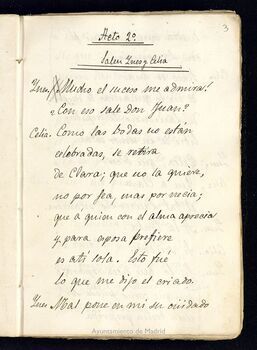 3
Acto 2º
Salen Ynes y Celia
Ynes. Mucho el suceso me admira!
¿Con eso sale Don Juan?
Celia. Como las bodas no están
celebradas, se retira
de Clara; que no la quiere,
no por fea, mas por necia;
que a quien con el alma aprecia
y para esposa prefiere
es a ti sola. Esto fué
lo que me dijo el criado.
Ynes Mal pone en mi su cuidado
Ayuntamiento de Madrid